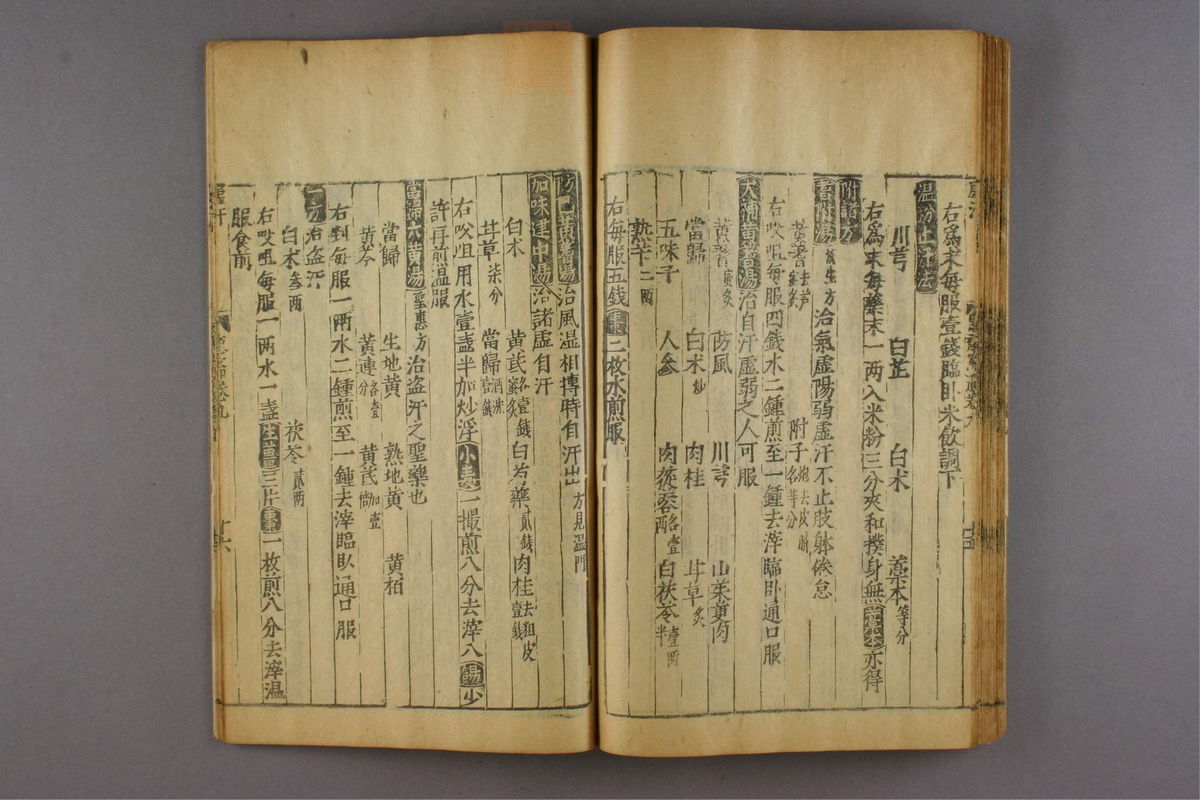 右爲末每服壹錢臨卧米飲調下
温粉止汗法
川芎 白芷 白术 藁本等分
右爲末每藥末一两入米粉三分夾和撲身無藁本亦得
附諸方
耆附湯濟生方治氣虛陽弱虛汗不止肢躰倦怠
黃耆去芦蜜炙 附子炮去皮臍各等分
右㕮咀每服四錢水二鍾煎至一鍾去滓臨卧通口服
大補黃耆湯治自汗虛弱之人可服
黃耆蜜炙 防風 川芎 山茱萸肉
當歸 白术炒 肉桂 甘草炙
五味子 人參 肉蓯蓉 白茯苓壹两半
熟芐二两
右每服五錢棗二枚水煎服
防己黃耆湯治風温相摶時自汗出方見温門
加味建中湯治諸虛自汗
白术 黃芪蜜炙各壹錢 白芍藥貳錢 肉桂去粗皮壹錢
甘草柒分 當歸酒洗壹錢
右㕮咀用水壹盞半加炒浮小麦一撮煎八分去滓入餳少
許再煎温服
當歸六黃湯聖惠方治盗汗之聖藥也
當歸 生地黃 熟地黃 黃栢
黃芩 黃連各壹分 黃芪加壹倍
右剉每服一两水二鍾煎至一鍾去滓臨卧通口服
一方治盗汗
白术參两 茯苓貳两
右㕮咀每服一两水一盞生薑三片棗一枚煎八分去滓温
服食前